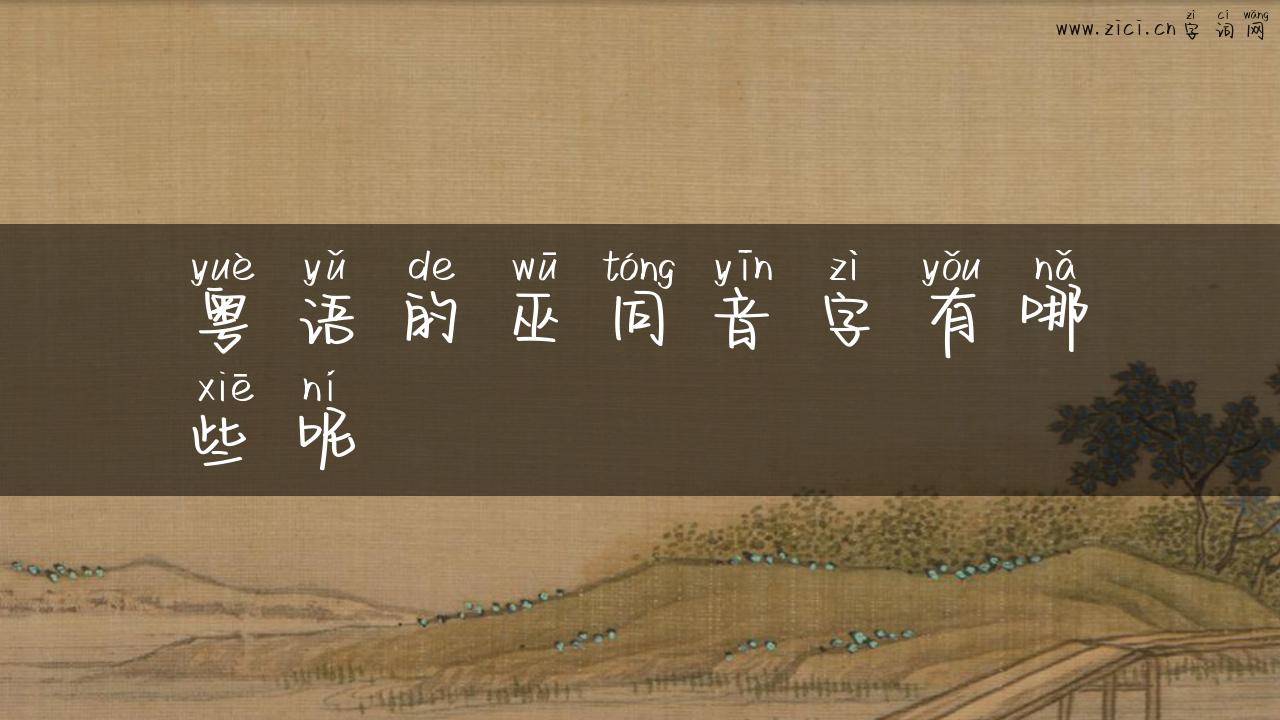 zì cí wǎng
www.zici.cn字词网
yuè yǔ de wū tóng yīn zì yǒu nǎ
粤语的巫同音字有哪
xiē ní
些呢